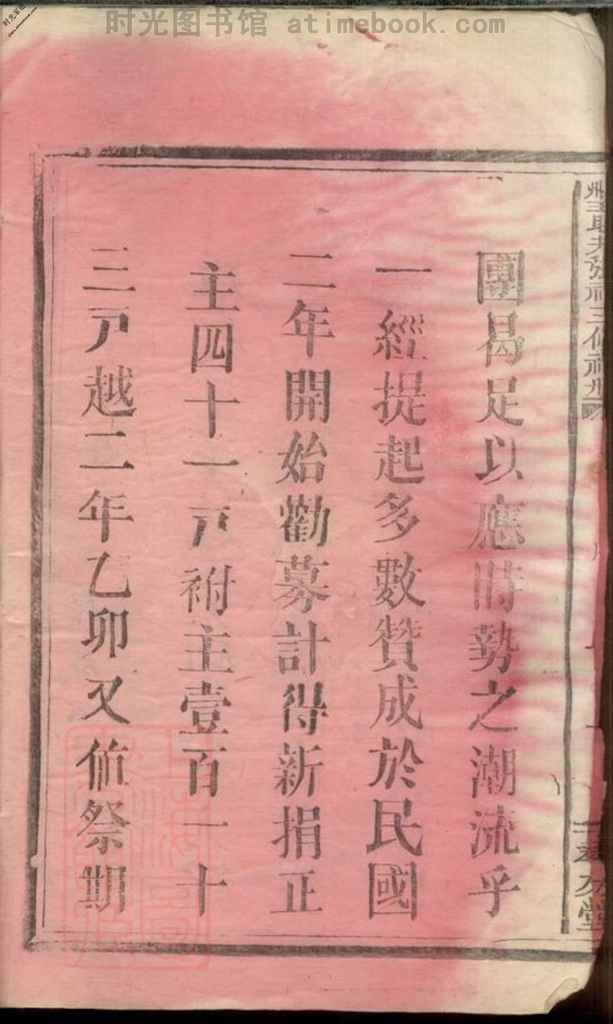 时光图书馆 atimebook.com
團曷足以應時勢之潮流乎
一經提起多數贊成於民國
二年開始勸募計得新捐正
主四十一戸祔主壹百一十
三戸越二年乙卯又值祭期